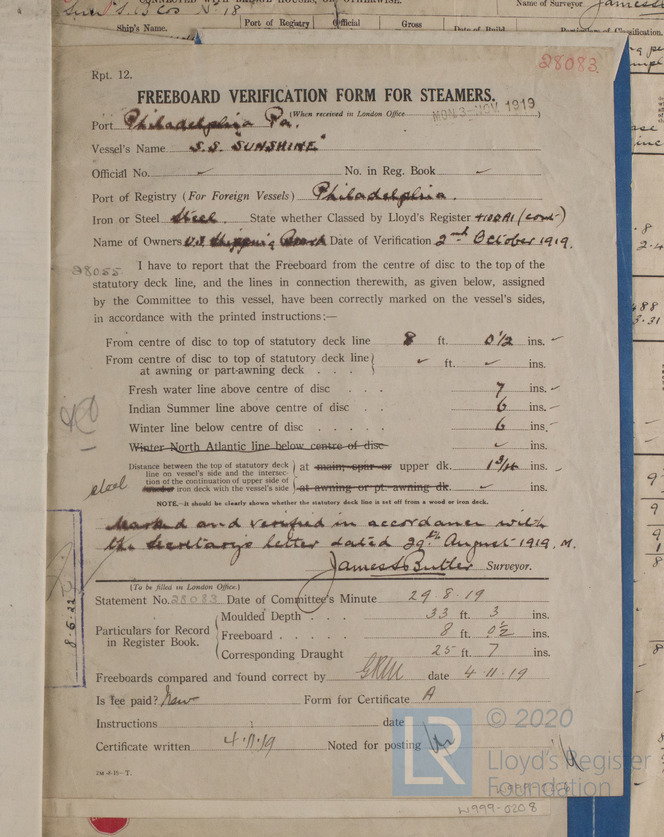 Name of Surveyor James
Ship's Name. Port of Registry Official Gross Date of Build
28083
Rpt. 12.
FREEBOARD VERIFICATION FORM FOR STEAMERS.
(When received in London Office MON. 3-NOV. 1919 )
Port Philadelphia Pa.
Vessel's Name S.S. "SUNSHINE"
Official No. ✓ No. in Reg. Book ✓
Port of Registry (For Foreign Vessels) Philadelphia.
Iron or Steel Steel. State whether Classed by Lloyd's Register +100A1 (cont)
Name of Owners U.S. Shipping Board Date of Verification 2nd October 1919.
28055
I have to report that the Freeboard from the centre of disc to the top of the
statutory deck line, and the lines in connection therewith, as given below, assigned
by the Committee to this vessel, have been correctly marked on the vessel's sides,
in accordance with the printed instructions:—
From centre of disc to top of statutory deck line 8 ft. 0½ ins. ✓
From centre of disc to top of statutory deck line
at awning or part-awning deck . . . ✓ ft. ✓ ins.
Fresh water line above centre of disc . . . 7 ins. ✓
Indian Summer line above centre of disc . . 6 ins. ✓
Winter line below centre of disc . . . . . 6 ins.
Winter North Atlantic line below centre of disc ✓ ins.
Distance between the top of statutory deck
line on vessel's side and the intersec-
tion of the continuation of upper side of
steel iron deck with the vessel's side
at main, spar or upper dk. 1 3/4 ins.
at awning or pt. awning dk. ✓ ins.
NOTE.—It should be clearly shown whether the statutory deck line is set off from a wood or iron deck.
Marked and verified in accordance with
the Secretary's letter dated 29th August 1919. M.
James S Butler Surveyor.
(To be filled in London Office.)
Statement No. 28083 Date of Committee's Minute 29.8.19
Particulars for Record
in Register Book.
Moulded Depth . . . 33 ft. 3 ins.
Freeboard . . . . . 8 ft. 0½ ins.
Corresponding Draught 25 ft. 7 ins.
Freeboards compared and found correct by date 4.11.19
Is fee paid? New Form for Certificate A
Instructions date
Certificate written 4.11.19 Noted for posting
2M-8-15-T.
8.6.22
© 2020
LR
Lloyd's Register
Foundation
W999-0208